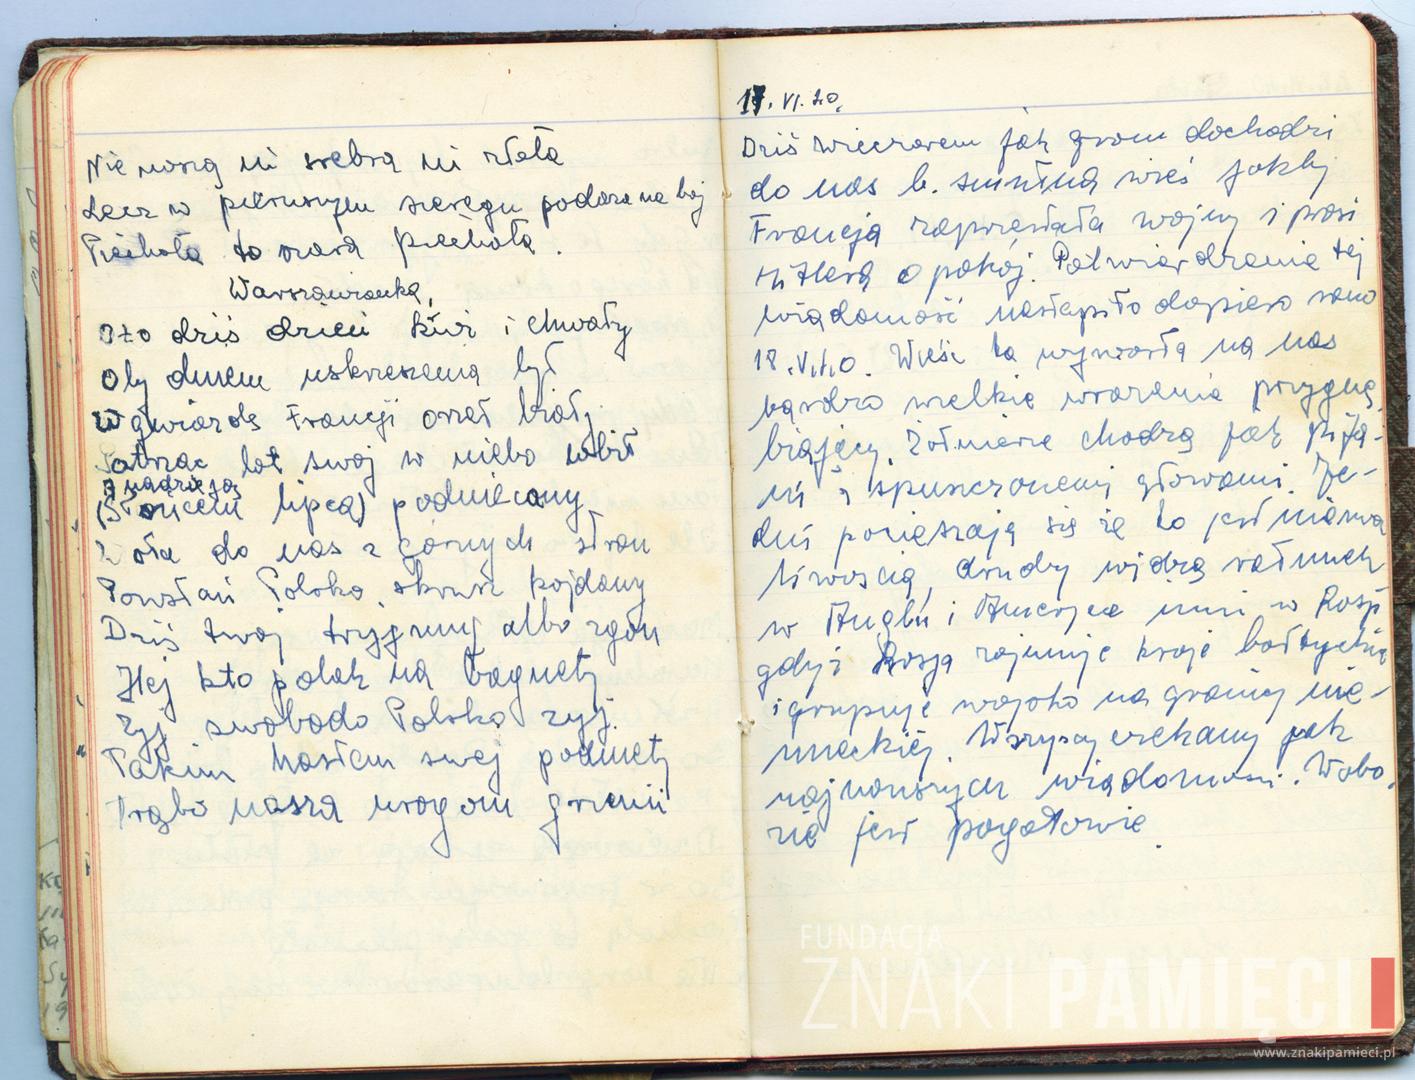 Nie noszą ni srebra ni złota
Lecz w pierwszym szeregu podąża na bój
Piechota ta szara piechota.
Warszawianka,
Oto dziś dzień krwi i chwały
Oby dniem wskrzeszenia był
W gwiazdę Francji orzeł biały
Patrząc lot swój w niebo wbił
nadzieją
(Słońcem lipca) podniecany
Woła do nas z górnych stron
Powstań Polsko, skrusz kajdany
Dziś twój tryjumf albo zgon
Hej kto polak na bagnety
Żyj swobodo Polsko żyj.
Takim hasłem swej podniety
Trąbo nasza wrogom grzmij
17. VI. 40.
Dziś wieczorem jak grom dochodzi
do nas b. smutna wieś jakby
Francja zaprzestała wojny i prosi
Hitlera o pokój. Potwierdzenie tej
wiadomość nastąpiło dopiero rano
18.VI.40. Wieść ta wywarła na nas
bardzo wielkie wrażenie przygnę-
biający. Żołnierze chodzą jak pija-
ni z spuszczonemi głowami. Je-
dni pocieszają się że to jest niemo
liwością, drudzy widzą ratunek
w Anglii i Ameryce inni w Rosji
gdyż Rosja zajmuje kraje bałtyckie
i grupuje wojsko na granicy nie-
mieckiej. Wszyscy czekamy jak
najnowszych wiadomości. W obo-
zie jest pogotowie.
FUNDACJA
ZNAKI PAMIĘCI
www.znakipamieci.pl